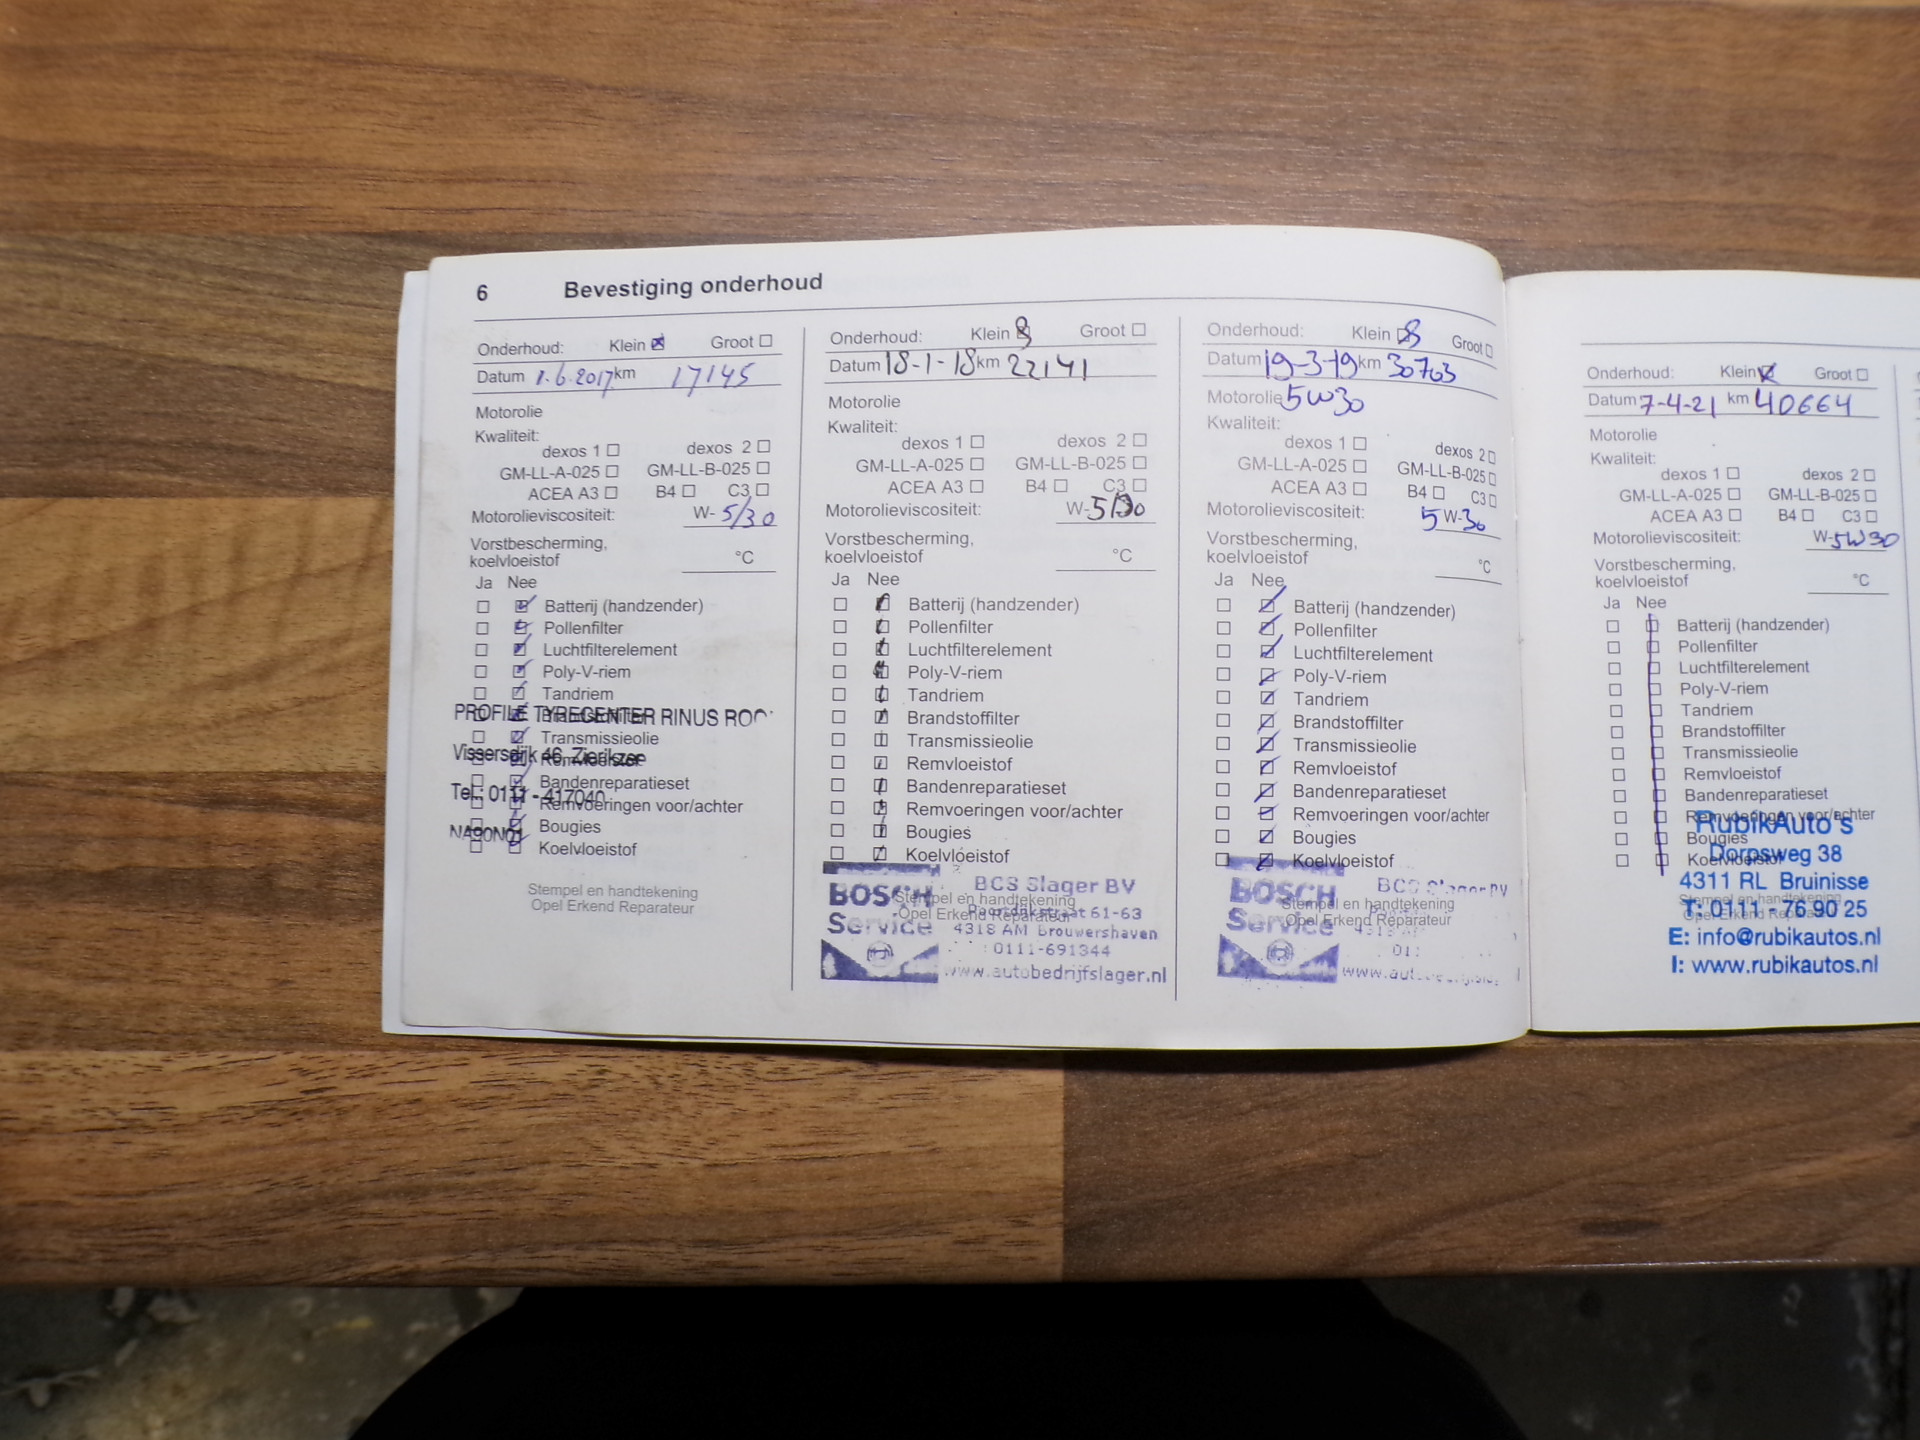 6 Bevestiging onderhoud
Onderhoud: Klein Groot
Datum 1.6.2017 km 17145
Motorolie
Kwaliteit:
dexos 1 dexos 2
GM-LL-A-025 GM-LL-B-025
ACEA A3 B4 C3
Motorolieviscositeit: W- 5/30
Vorstbescherming,
koelvloeistof °C
Ja Nee
Batterij (handzender)
Pollenfilter
Luchtfilterelement
Poly-V-riem
Tandriem
Brandstoffilter
Transmissieolie
Remvloeistof
Bandenreparatieset
Remvoeringen voor/achter
Bougies
Koelvloeistof
PROFILE TYRECENTER RINUS
Vissersdijk 46, Zierikzee
Tel.: 0111 - 417040
NA90N01
Stempel en handtekening
Opel Erkend Reparateur
Onderhoud: Klein Groot
Datum 18-1-18 km 22141
Motorolie
Kwaliteit:
dexos 1 dexos 2
GM-LL-A-025 GM-LL-B-025
ACEA A3 B4 C3
Motorolieviscositeit: W-5/30
Vorstbescherming,
koelvloeistof °C
Ja Nee
Batterij (handzender)
Pollenfilter
Luchtfilterelement
Poly-V-riem
Tandriem
Brandstoffilter
Transmissieolie
Remvloeistof
Bandenreparatieset
Remvoeringen voor/achter
Bougies
Koelvloeistof
Stempel en handtekening
Opel Erkend Reparateur
BOSCH
Service
BCS Slager BV
61-63
4318 AM Brouwershaven
: 0111-691344
www.autobedrijfslager.nl
Onderhoud: Klein Groot
Datum 19-3-19 km 30703
Motorolie 5W30
Kwaliteit:
dexos 1 dexos 2
GM-LL-A-025 GM-LL-B-025
ACEA A3 B4 C3
Motorolieviscositeit: 5 W-30
Vorstbescherming,
koelvloeistof °C
Ja Nee
Batterij (handzender)
Pollenfilter
Luchtfilterelement
Poly-V-riem
Tandriem
Brandstoffilter
Transmissieolie
Remvloeistof
Bandenreparatieset
Remvoeringen voor/achter
Bougies
Koelvloeistof
Stempel en handtekening
Opel Erkend Reparateur
BOSCH
Service
Onderhoud: Klein Groot
Datum 7-4-21 km 40664
Motorolie
Kwaliteit:
dexos 1 dexos 2
GM-LL-A-025 GM-LL-B-025
ACEA A3 B4 C3
Motorolieviscositeit: W-5W30
Vorstbescherming,
koelvloeistof °C
Ja Nee
Batterij (handzender)
Pollenfilter
Luchtfilterelement
Poly-V-riem
Tandriem
Brandstoffilter
Transmissieolie
Remvloeistof
Bandenreparatieset
Remvoeringen voor/achter
Bougies
Koelvloeistof
Stempel en handtekening
Opel Erkend Reparateur
RubikAuto's
Dorpsweg 38
4311 RL Bruinisse
T: 0111 - 76 90 25
E: info@rubikautos.nl
I: www.rubikautos.nl